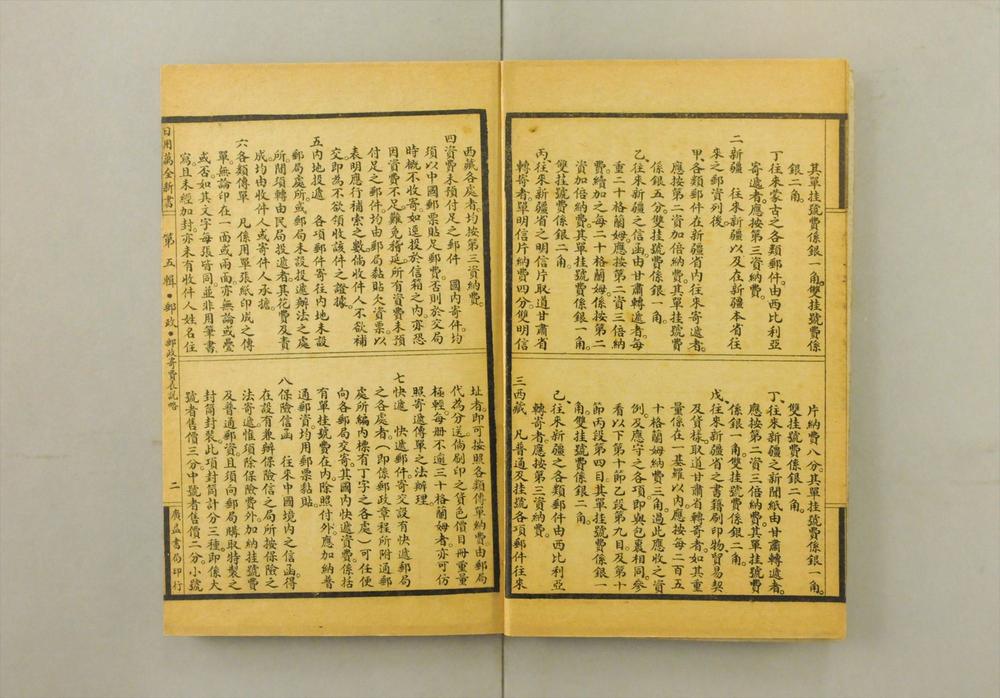 其單挂號費係銀一角。雙挂號費係
銀二角。
丁、往來蒙古之各類郵件。由西比利亞
寄遞者。應按第三資納費。
二新疆　往來新疆以及在新疆本省往
來之郵資列後。
甲、各類郵件在新疆省內往來寄遞者。
應按第二資加倍納費其單挂號費
係銀五分。雙挂號費係銀一角。
乙、往來新疆之信函由甘肅轉遞者。每
重二十格蘭姆。應按第二資三倍納
費。續加之每二十格蘭姆。係按第二
資加倍納費。其單挂號費係銀一角。
雙挂號費係銀二角。
丙、往來新疆省之明信片取道甘肅省
轉寄者。單明信片納費四分。雙明信
片納費八分。其單挂號費係銀一角。
雙挂號費係銀二角。
丁、往來新疆之新聞紙。由甘肅轉遞者。
應按第二資三倍納費。其單挂號費
係銀一角。雙挂號費係銀二角。
戊、往來新疆省之書籍刷印物。貿易契
及貨樣取道甘肅省轉寄者。如其重
量係在一基羅以內。應按每二百五
十格蘭姆納費三角。過此應收之資
例。及應守之各項即與包裹相同。參
看以下第十節乙段第九目。及第十
節丙段第四目。其單挂號費係銀一
角。雙挂號費係銀二角。
己、往來新疆之各類郵件由西比利亞
轉寄者。應按第三資納費。
三西藏　凡普通及挂號各項郵件往來
西藏各處者。均按第三資納費。
四資費未預付足之郵件　國內寄件。均
須以中國郵票貼足郵費。否則於交局
時概不收寄。如逕投於信箱之內。亦恐
因資費不足。難免稽延。所有資費未預
付足之郵件。均由郵局黏貼欠資票。以
表明應行補索之數。倘收件人不欲補
交。即為不欲領收該件之證據。
五內地投遞　各項郵件寄往內地未設
郵局處所。或郵局未設投遞辦法之處
所。間須轉由民局投遞者。其花費及責
成。均由收件人或寄件人承擔。
六各類傳單　凡係用單張紙印成之傳
單。無論印在一面或兩面。亦無論或疊
或否。如其文字每張皆同。並非用筆書
寫。且未經加封。亦未有收件人姓名住
址者。即可按照各類傳單納費。由郵局
代為分送。倘刷印之貨色價目冊。重量
極輕。每冊不逾三十格蘭姆者。亦可仿
照寄遞傳單之法辦理。
七快遞　快遞郵件寄交設有快遞郵局
之各處者（即係郵政章程所附通郵
處所編內標有丁字之各處）可任便
向各郵局交寄。其國內快遞資費。係括
有單挂號費在內。除照付外。應加納普
通郵資。均用郵票黏貼。
八保險信函　往來中國境內之信函。得
在設有兼辦保險信之局所按保險之
法寄遞。惟須除保險費外。加納挂號費
及普通郵資。且須向郵局購取特製之
封筒封裝。此項封筒計分三種。即係大
號者售價三分。中號者售價二分。小號
日用萬全新書　第五輯●郵政●郵政寄費表說略　二　廣益書局印行